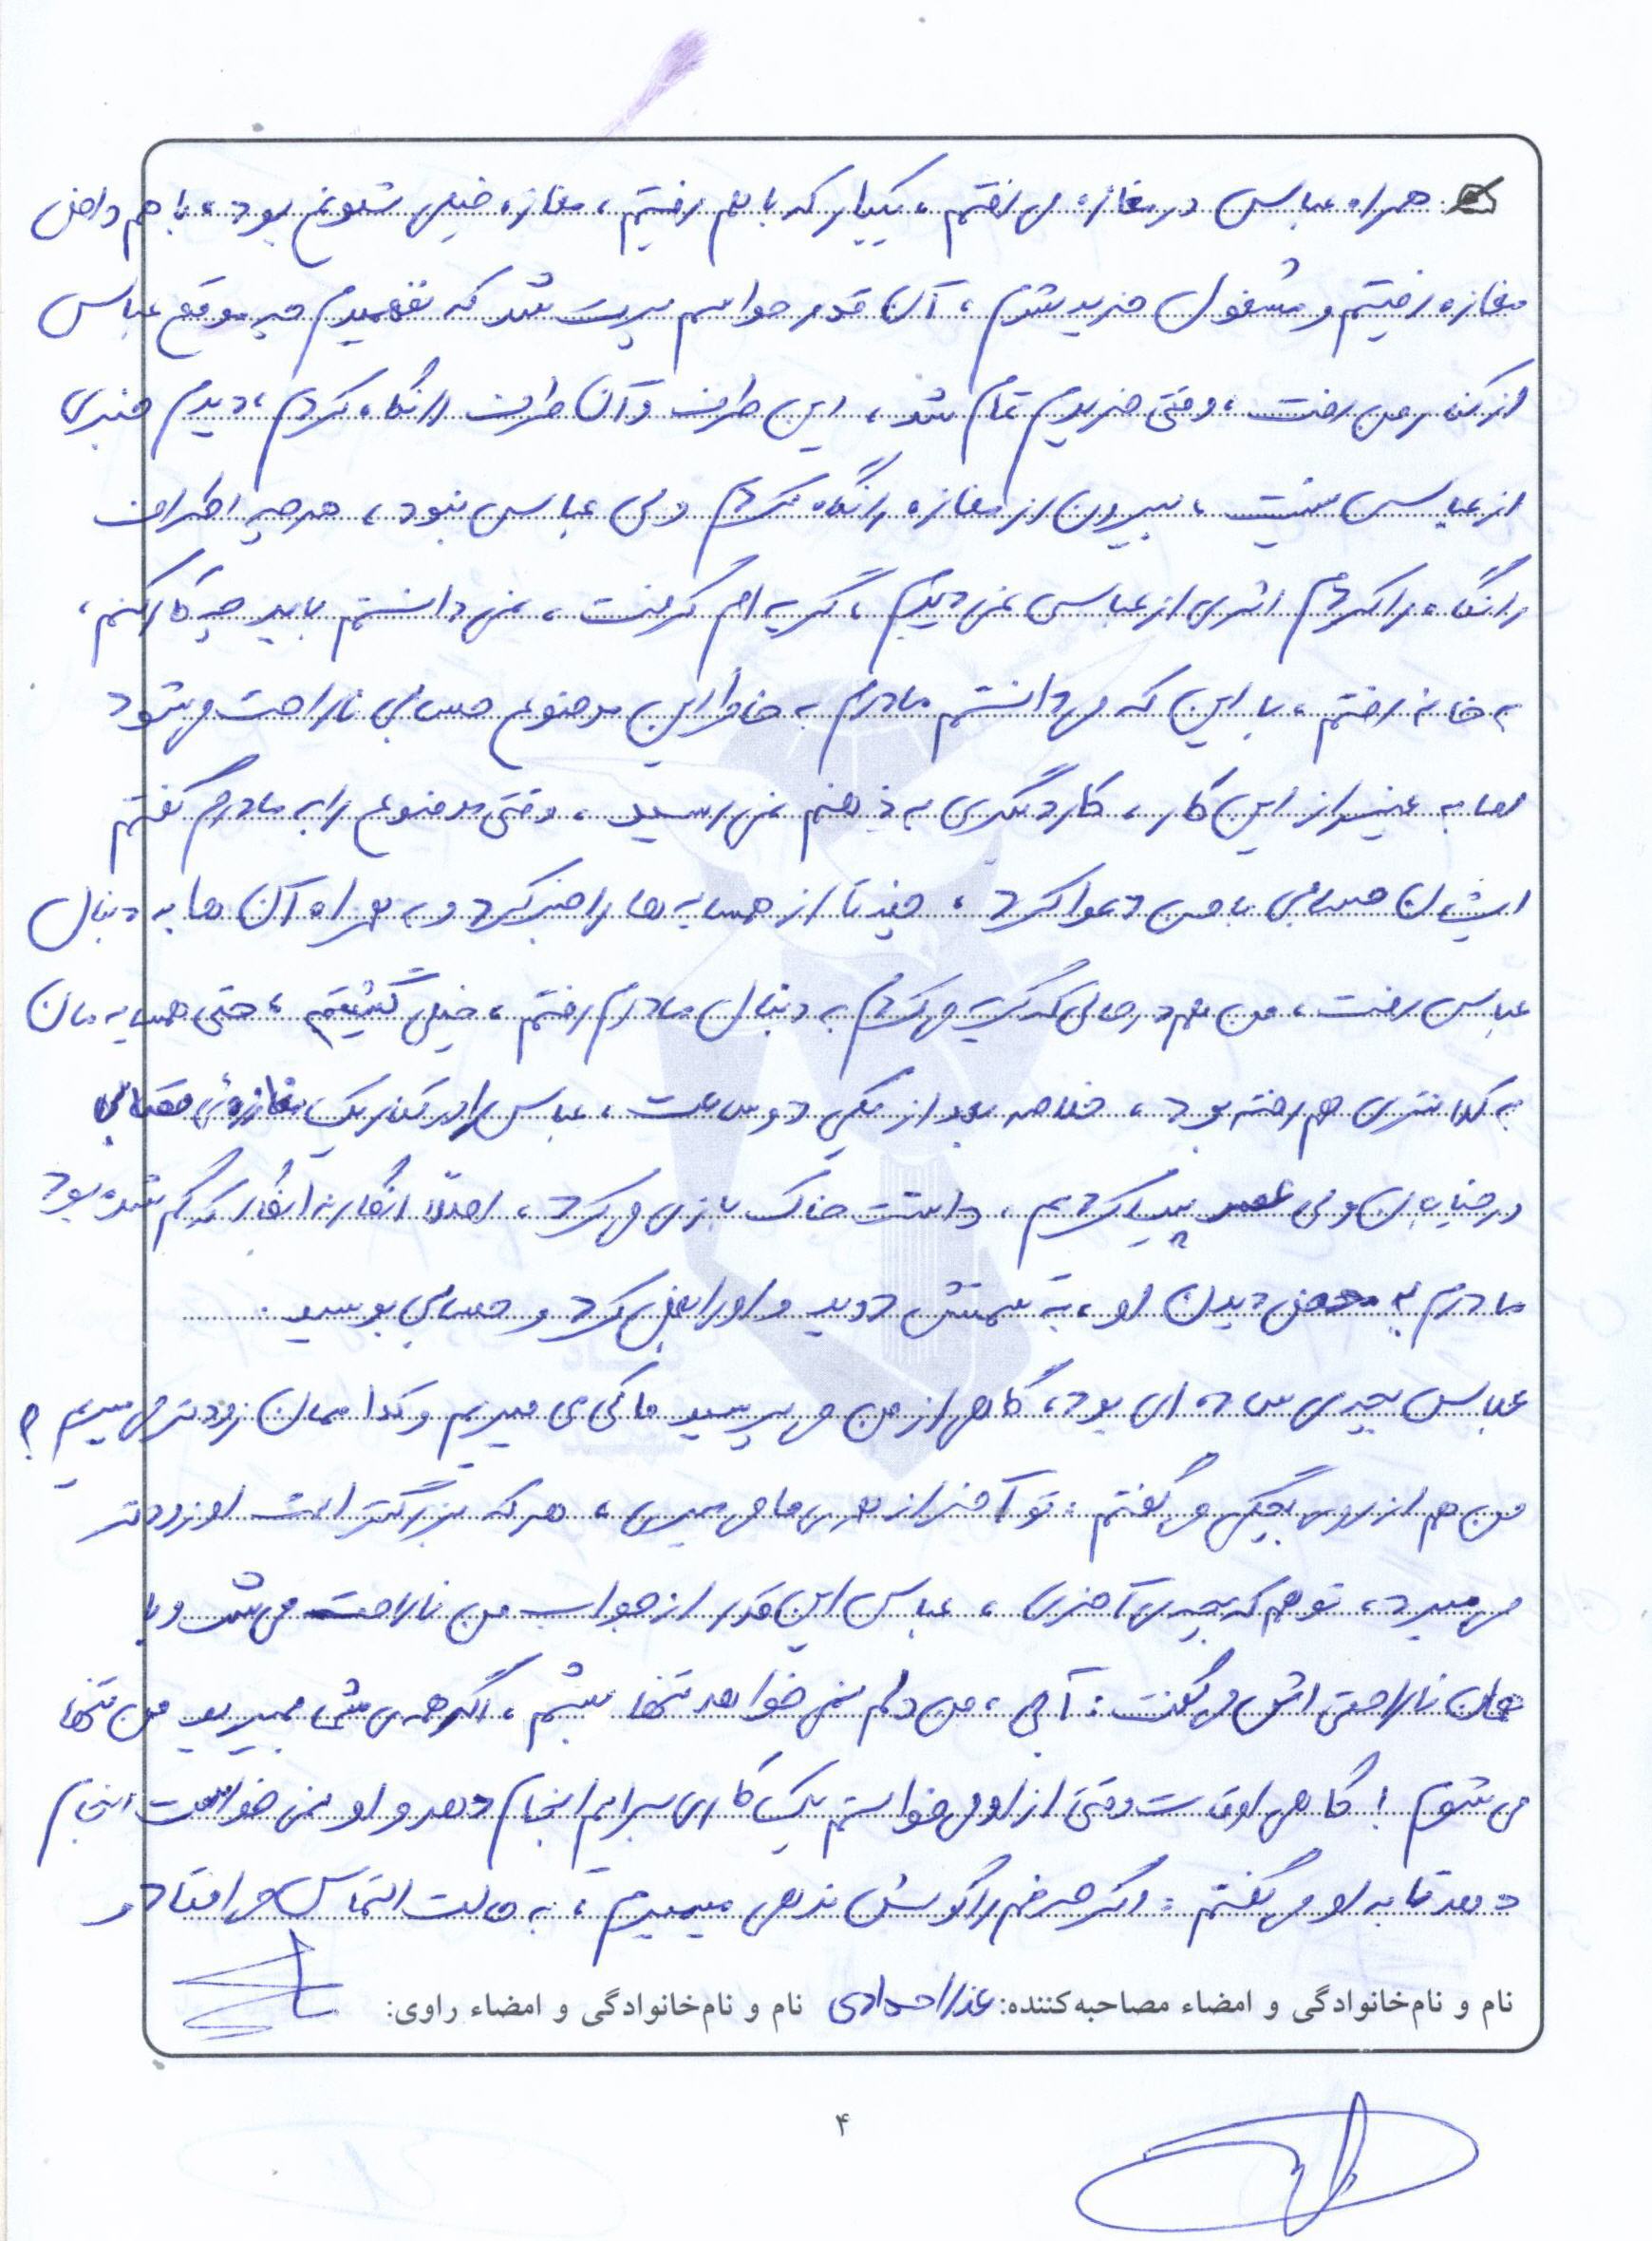 همراه عباس در مغازه می رفتم ، یکبار که با هم رفتیم ، مغازه خیلی شلوغ بود ، با هم داخل
مغازه رفتیم و مشغول خرید شدم ، آن قدر حواسم پرت شد که نفهمیدم چه موقع عباس
از کنار من رفت ، وقتی خریدم تمام شد ، این طرف و آن طرف را نگاه کردم ، دیدم خبری
از عباس نیست ، بیرون از مغازه را نگاه کردم ولی عباس نبود ، هر چه اطراف
را نگاه کردم اثری از عباس نمی دیدم ، گریه ام گرفت ، نمی دانستم باید چه کار کنم ،
به خانه رفتم ، با این که می دانستم مادرم به خاطر این موضوع حسابی ناراحت می شود
اما به غیر از این کار ، کار دیگری به ذهنم نمی رسید ، وقتی موضوع را به مادرم گفتم
ایشان حسابی با من دعوا کرد ، چند تا از همسایه ها را خبر کرد و به همراه آن ها به دنبال
عباس رفت ، من هم در حالی که گریه می کردم به دنبال مادرم رفتم ، خیلی گشتیم ، حتی همسایه مان
به کلانتری هم رفته بود ، خلاصه بعد از یکی دو ساعت ، عباس را در کنار یک مغازه ی قصابی
در خیابان ولی عصر پیدا کردیم ، داشت خاک بازی می کرد ، اصلاً انگار نه انگار که گم شده بود
مادرم به محض دیدن او ، به سمتش دوید و او را بغل کرد و حسابی بوسید .
عباس بچه ی ساده ای بود ، گاهی از من می پرسید ما کی می میریم و کدام مان زودتر می میریم ؟
من هم از روی بچگی می گفتم : تو آخر از همه ی ما می میری ، هر که بزرگتر است او زودتر
می میرد ، تو هم که بچه ی آخری ، عباس این قدر از جواب من ناراحت می شد و با
همان ناراحتی اش می گفت : آجی ، من دلم نمی خواهد تنها باشم ، اگر همه ی شما بمیرید من تنها
می شوم ! گاهی اوقات وقتی از او می خواستم یک کاری برایم انجام دهد و او نمی خواست انجام
دهد تا به او می گفتم : اگر حرفم را گوش ندهی میمیرم ، به حالت التماس می افتاد و
نام و نام‌خانوادگی و امضاء مصاحبه‌کننده: عذرا احدادی نام و نام‌خانوادگی و امضاء راوی:
۴